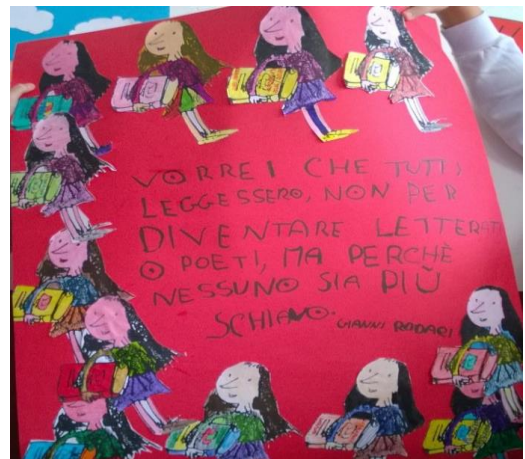 VORREI CHE TUTTI
LEGGESSERO, NON PER
DIVENTARE LETTERAT
O POETI, MA PERCHÈ
NESSUNO SIA PIÙ
SCHIAVO.
GIANNI RODARI